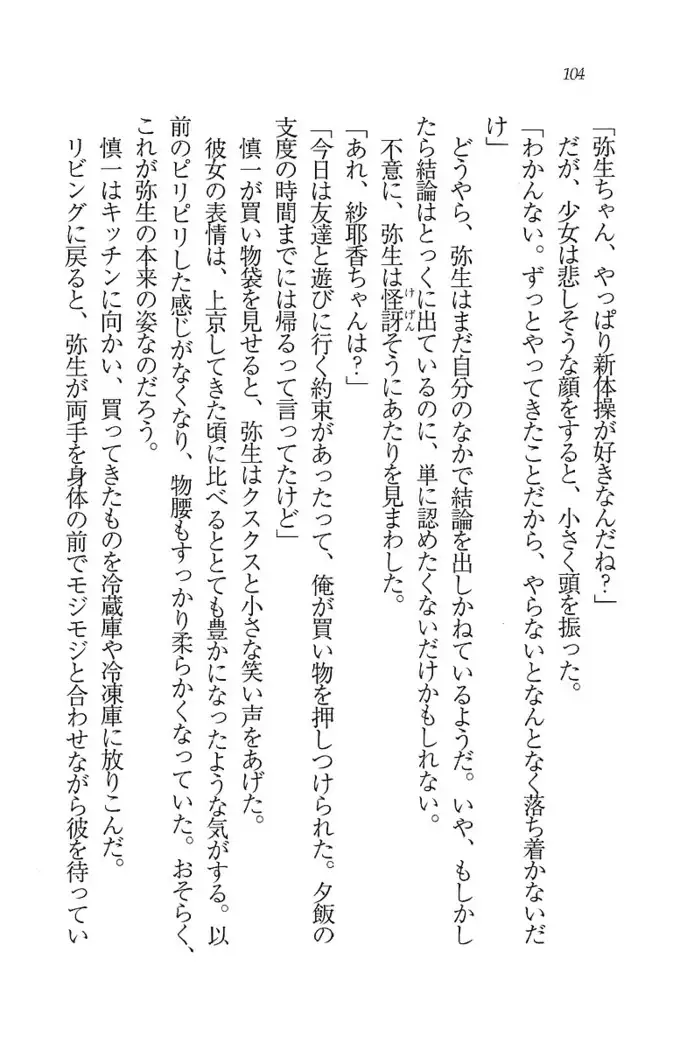 104
「弥生ちゃん、やっぱり新体操が好きなんだね？」
だが、少女は悲しそうな顔をすると、小さく頭を振った。
「わかんない。ずっとやってきたことだから、やらないとなんとなく落ち着かないだ
け」
どうやら、弥生はまだ自分のなかで結論を出しかねているようだ。いや、もしかし
たら結論はとっくに出ているのに、単に認めたくないだけかもしれない。
不意に、弥生は怪訝そうにあたりを見まわした。
けげん
「あれ、紗耶香ちゃんは？」
「今日は友達と遊びに行く約束があったって、俺が買い物を押しつけられた。夕飯の
支度の時間までには帰るって言ってたけど」
慎一が買い物袋を見せると、弥生はクスクスと小さな笑い声をあげた。
彼女の表情は、上京してきた頃に比べるととても豊かになったような気がする。以
前のピリピリした感じがなくなり、物腰もすっかり柔らかくなっていた。おそらく、
これが弥生の本来の姿なのだろう。
慎一はキッチンに向かい、買ってきたものを冷蔵庫や冷凍庫に放りこんだ。
リビングに戻ると、弥生が両手を身体の前でモジモジと合わせながら彼を待ってい